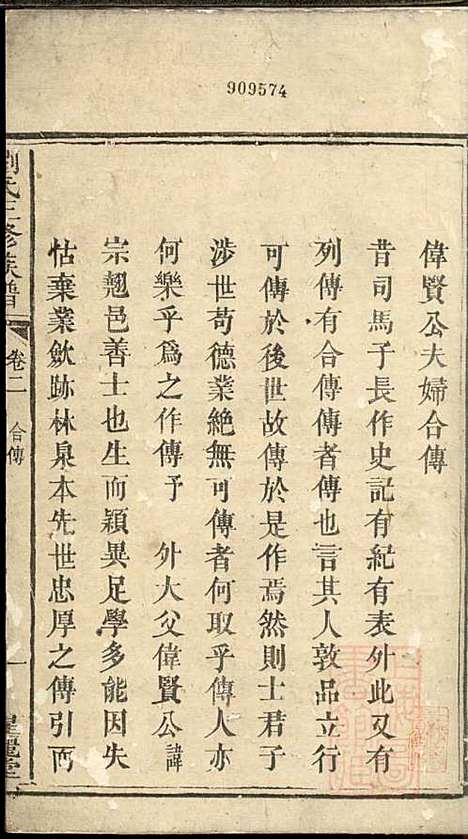 909574
偉賢公夫婦合傳
昔司馬子長作史記有紀有表外此又有
列傳有合傳傳者傳也言其人敦品立行
可傳於後世故傳於是作焉然則士君子
涉世苟德業絕無可傳者何取乎傳人亦
何樂乎爲之作傳予 外大父偉賢公諱
宗翹邑善士也生而穎異足學多能因失
怙棄業歛跡林泉本先世忠厚之傳引而
劉氏三修族譜 卷二 合傳 一